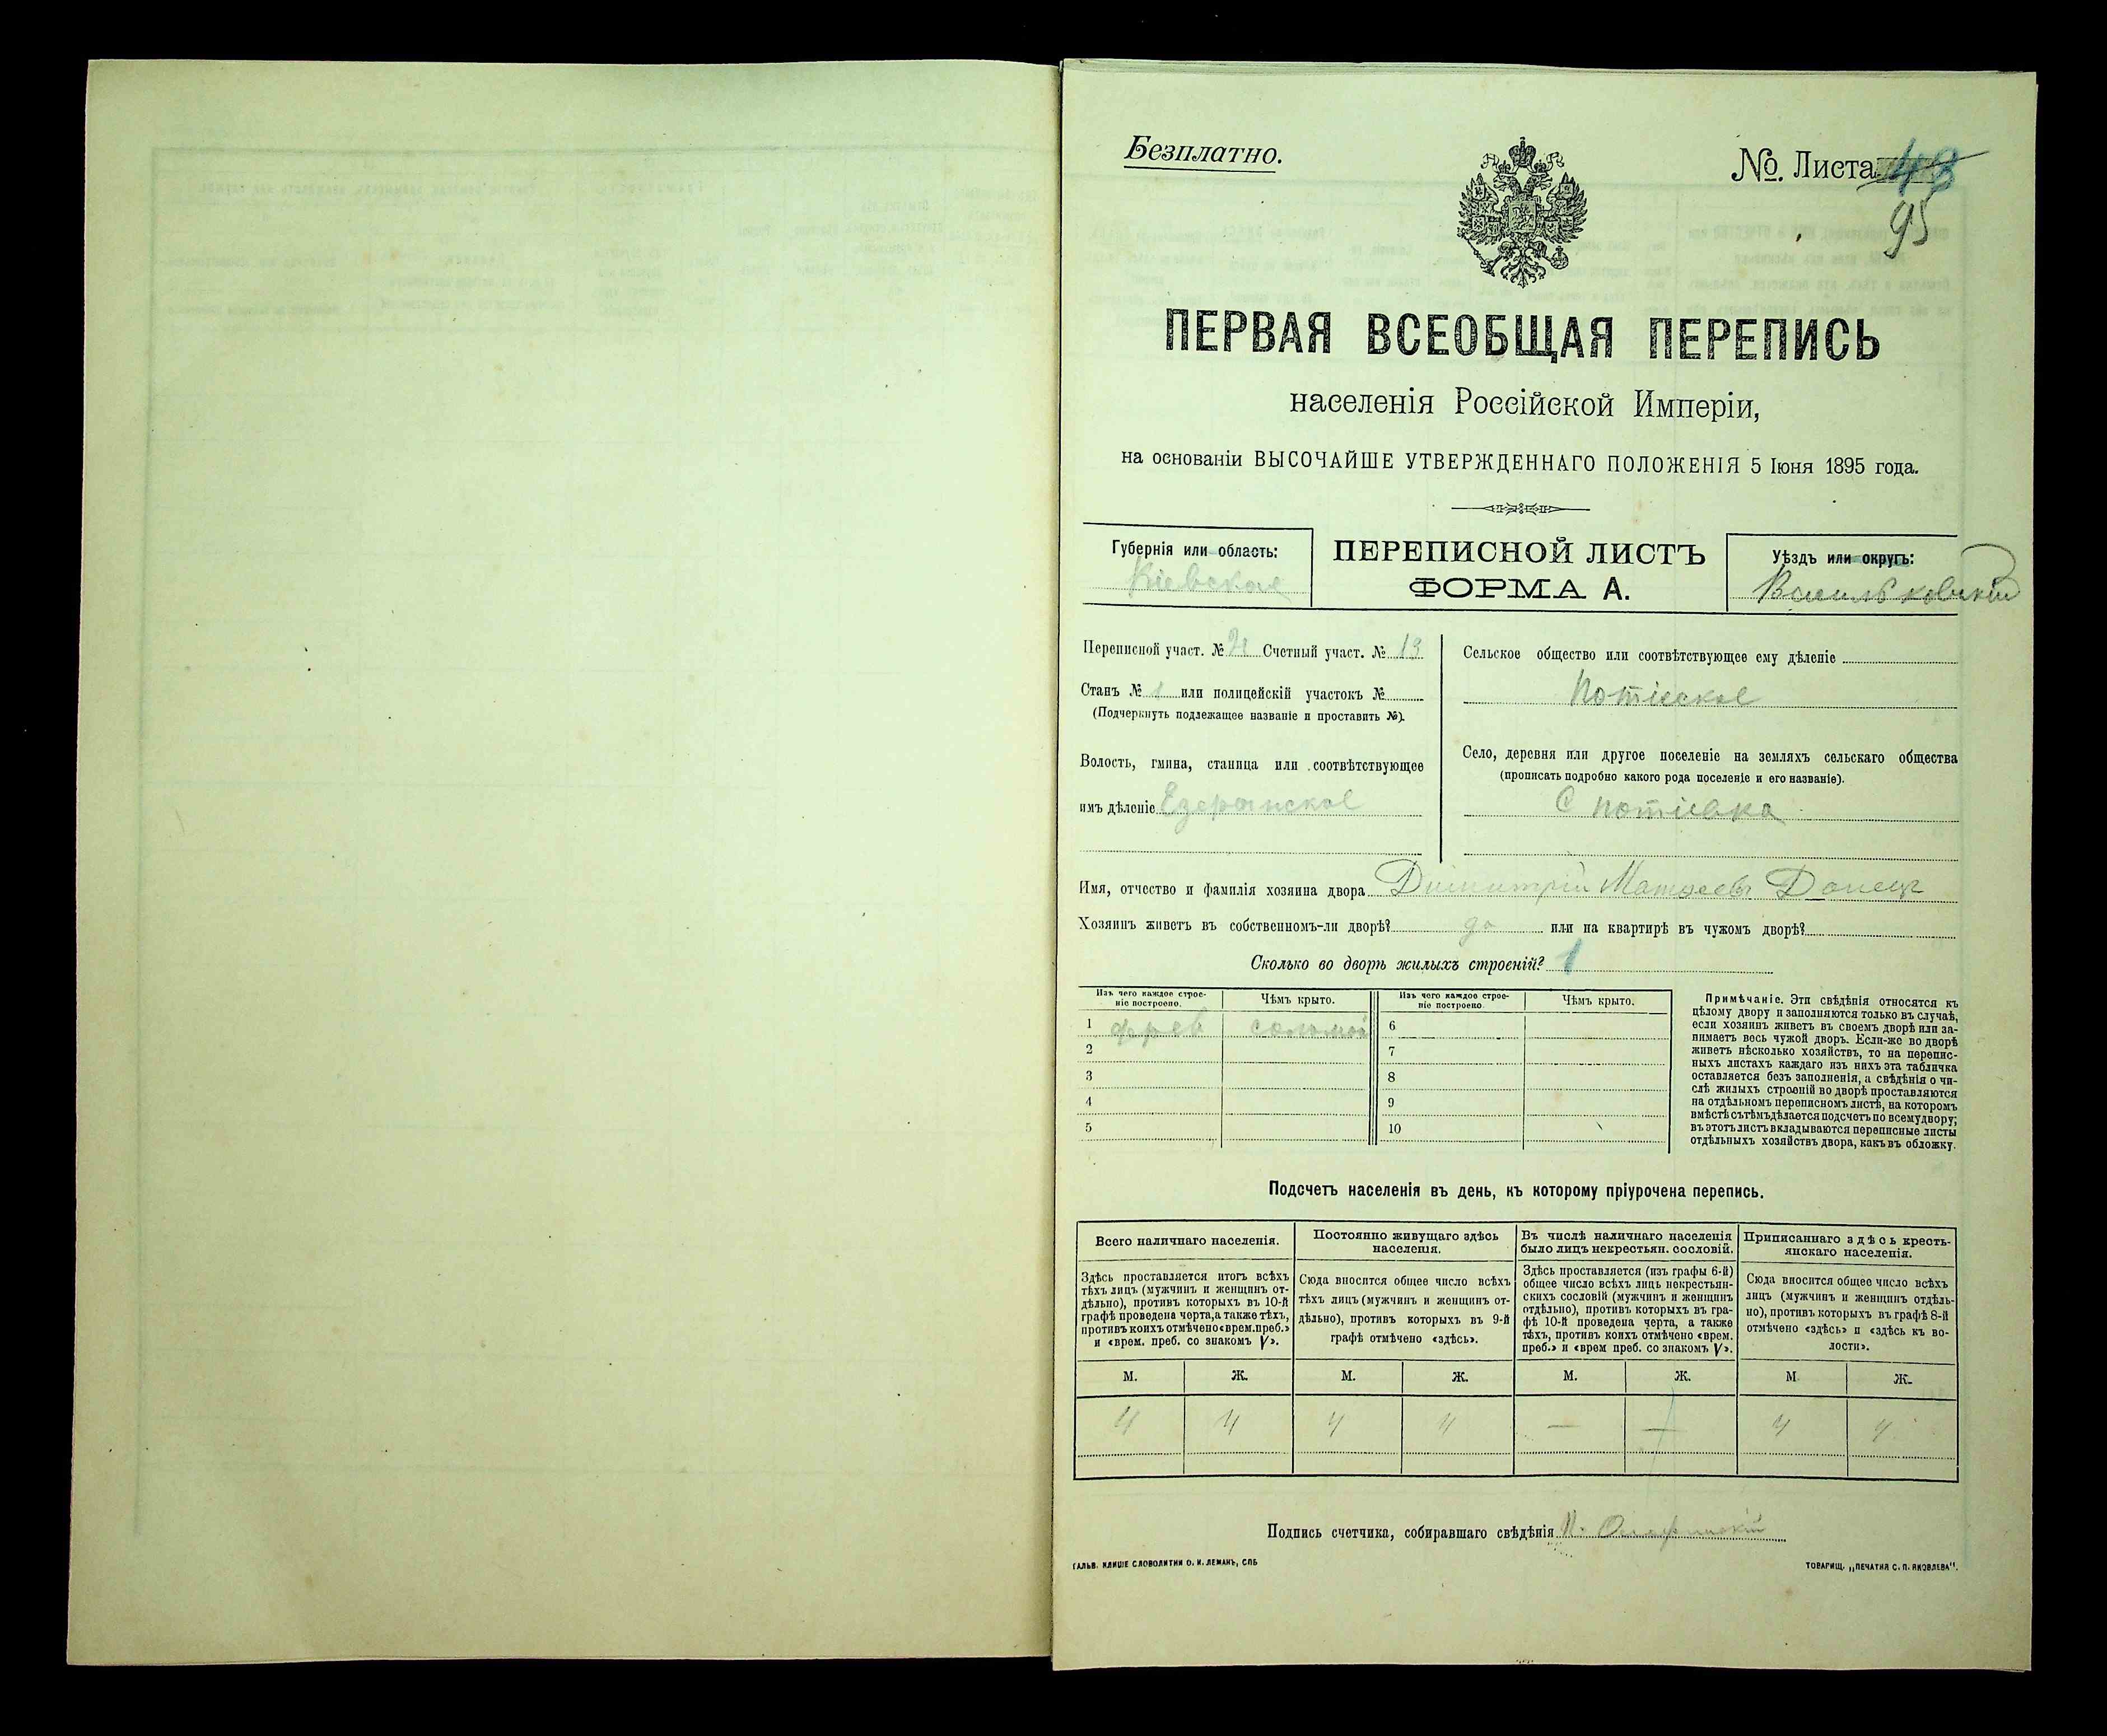 Безплатно.
№. Листа 48
95
ПЕРВАЯ ВСЕОБЩАЯ ПЕРЕПИСЬ
населенія Россійской Имперіи,
на основаніи ВЫСОЧАЙШЕ УТВЕРЖДЕННАГО ПОЛОЖЕНІЯ 5 Іюня 1895 года.
Губернія или область:
Кіевская
ПЕРЕПИСНОЙ ЛИСТЪ
ФОРМА А.
Уѣздъ или округъ:
Васильковскій
Переписной участ. № Счетный участ. № 13
Станъ № 1 или полицейскій участокъ №
(Подчеркнуть подлежащее названіе и проставить №).
Волость, гмина, станица или соотвѣтствующее
имъ дѣленіе Езерянское
Сельское общество или соотвѣтствующее ему дѣленіе
Потіевское
Село, деревня или другое поселеніе на земляхъ сельскаго общества
(прописать подробно какого рода поселеніе и его названіе).
С Потіевка
Имя, отчество и фамилія хозяина двора Димитрій Матвеевъ Донецъ
Хозяинъ живетъ въ собственномъ-ли дворѣ? да или на квартирѣ въ чужомъ дворѣ?
Сколько во дворѣ жилыхъ строеній? 1
Изъ чего каждое строе-
ніе построено.
Чѣмъ крыто.
Изъ чего каждое строе-
ніе построено.
Чѣмъ крыто.
1 древ соломой 6
2 7
3 8
4 9
5 10
Примѣчаніе. Эти свѣдѣнія относятся къ
цѣлому двору и заполняются только въ случаѣ,
если хозяинъ живетъ въ своемъ дворѣ или за-
нимаетъ весь чужой дворъ. Если-же во дворѣ
живетъ нѣсколько хозяйствъ, то на перепис-
ныхъ листахъ каждаго изъ нихъ эта табличка
оставляется безъ заполненія, а свѣдѣнія о чи-
слѣ жилыхъ строеній во дворѣ проставляются
на отдѣльномъ переписномъ листѣ, на которомъ
вмѣстѣ съ тѣмъ дѣлается подсчетъ по всему двору;
въ этотъ листъ вкладываются переписные листы
отдѣльныхъ хозяйствъ двора, какъ въ обложку.
Подсчетъ населенія въ день, къ которому пріурочена перепись.
Всего наличнаго населенія.
Здѣсь проставляется итогъ всѣхъ
тѣхъ лицъ (мужчинъ и женщинъ от-
дѣльно), противъ которыхъ въ 10-й
графѣ проведена черта, а также тѣхъ,
противъ коихъ отмѣчено «врем. преб.»
и «врем. преб. со знакомъ V».
Постоянно живущаго здѣсь
населенія.
Сюда вносится общее число всѣхъ
тѣхъ лицъ (мужчинъ и женщинъ от-
дѣльно), противъ которыхъ въ 9-й
графѣ отмѣчено «здѣсь».
Въ числѣ наличнаго населенія
было лицъ некрестьян. сословій.
Здѣсь проставляется (изъ графы 6-й)
общее число всѣхъ лицъ некрестьян-
скихъ сословій (мужчинъ и женщинъ
отдѣльно), противъ которыхъ въ гра-
фѣ 10-й проведена черта, а также
тѣхъ, противъ коихъ отмѣчено «врем.
преб.» и «врем преб. со знакомъ V».
Приписаннаго здѣсь кресть-
янскаго населенія.
Сюда вносится общее число всѣхъ
лицъ (мужчинъ и женщинъ отдѣль-
но), противъ которыхъ въ графѣ 8-й
отмѣчено «здѣсь» и «здѣсь къ во-
лости».
М. Ж. М. Ж. М. Ж. М Ж.
4 4 4 4 — — 4 4
Подпись счетчика, собиравшаго свѣдѣнія
ГАЛЬВ. КЛИШЕ СЛОВОЛИТНИ О. И. ЛЕМАНЪ, СПБ
ТОВАРИЩ. „ПЕЧАТНЯ С. П. ЯКОВЛЕВА“.